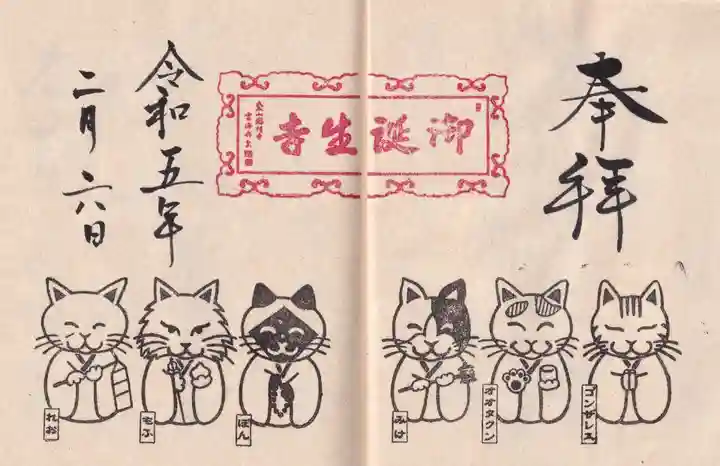 奉拝
御誕生寺
令和五年
二月六日
ゴンザレス
オオタクン
みけ
ぽん
もふ
れお